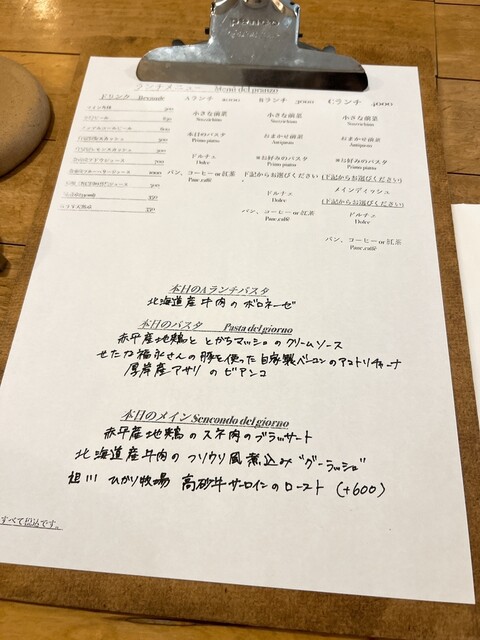 penco
ランチメニュー Menù del pranzo
ドリンク Bevande
Aランチ 2000
小さな前菜
Stuzzichino
本日のパスタ
Primo piatto
ドルチェ
Dolce
パン、コーヒー or 紅茶
Pane,caffè
Bランチ 3000
小さな前菜
Stuzzichino
おまかせ前菜
Antipasto
※お好みのパスタ
Primo piatto
(下記からお選びください)
ドルチェ
Dolce
パン、コーヒー or 紅茶
Pane,caffè
Cランチ 4000
小さな前菜
Stuzzichino
おまかせ前菜
Antipasto
※お好みのパスタ
Primo piatto
(下記からお選びください)
メインディッシュ
(下記からお選びください)
ドルチェ
Dolce
パン、コーヒー or 紅茶
Pane,caffè
本日のAランチパスタ
北海道産牛肉のボロネーゼ
本日のパスタ Pasta del giorno
赤平産地鶏ととかちマッシュのクリームソース
せたな福永さんの豚を使った自家製ベーコンのアマトリチャーナ
厚岸産アサリのビアンコ
本日のメイン Sencondo del giorno
赤平産地鶏のスネ肉のグラッサート
北海道産牛肉のフリウリ風煮込み"グーラッシュ"
旭川 ひかり牧場 高砂牛サーロインのロースト (+600)
すべて税込です。